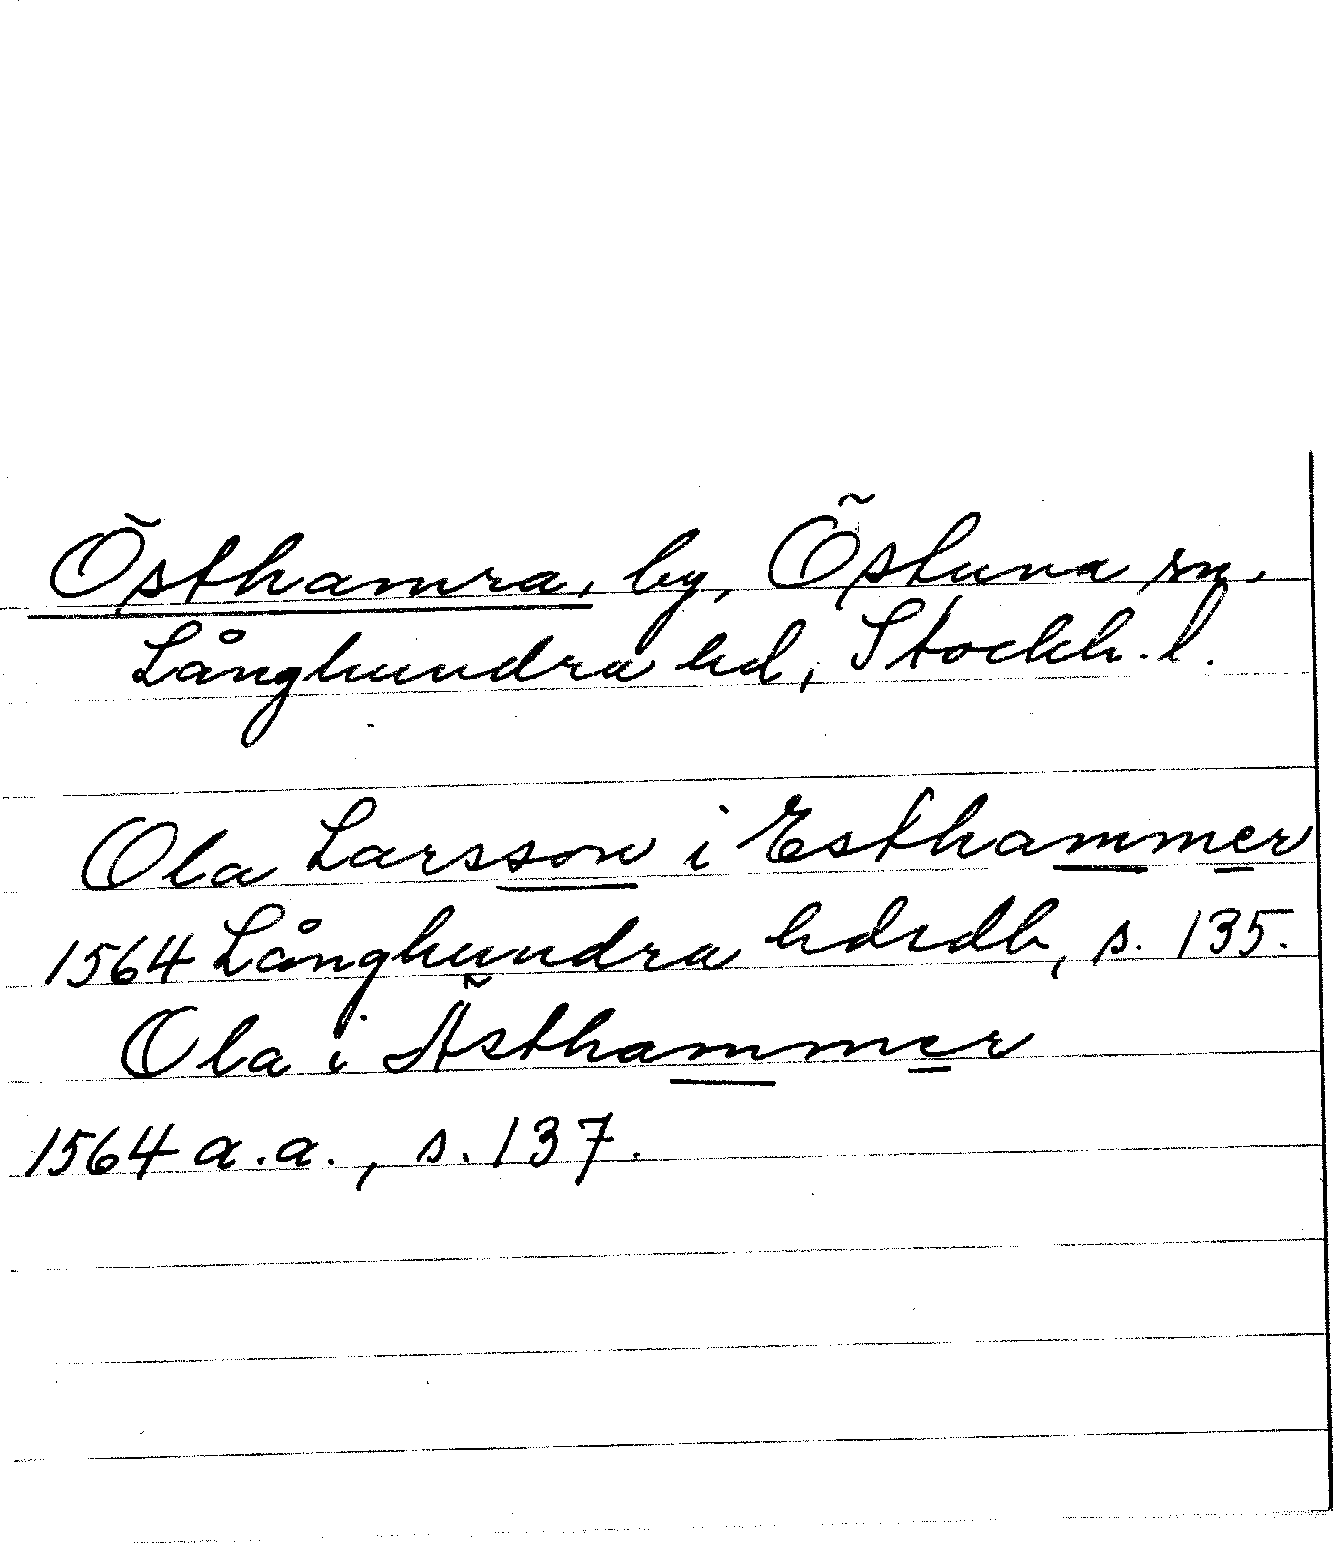 Östhamra, by, Östuna sn.
Långhundra hd, Stockh. l.
Ola Larsson i Esthammer
1564 Långhundra hdrdb, s. 135.
Ola i Ästhammer
1564 a.a., s. 137.